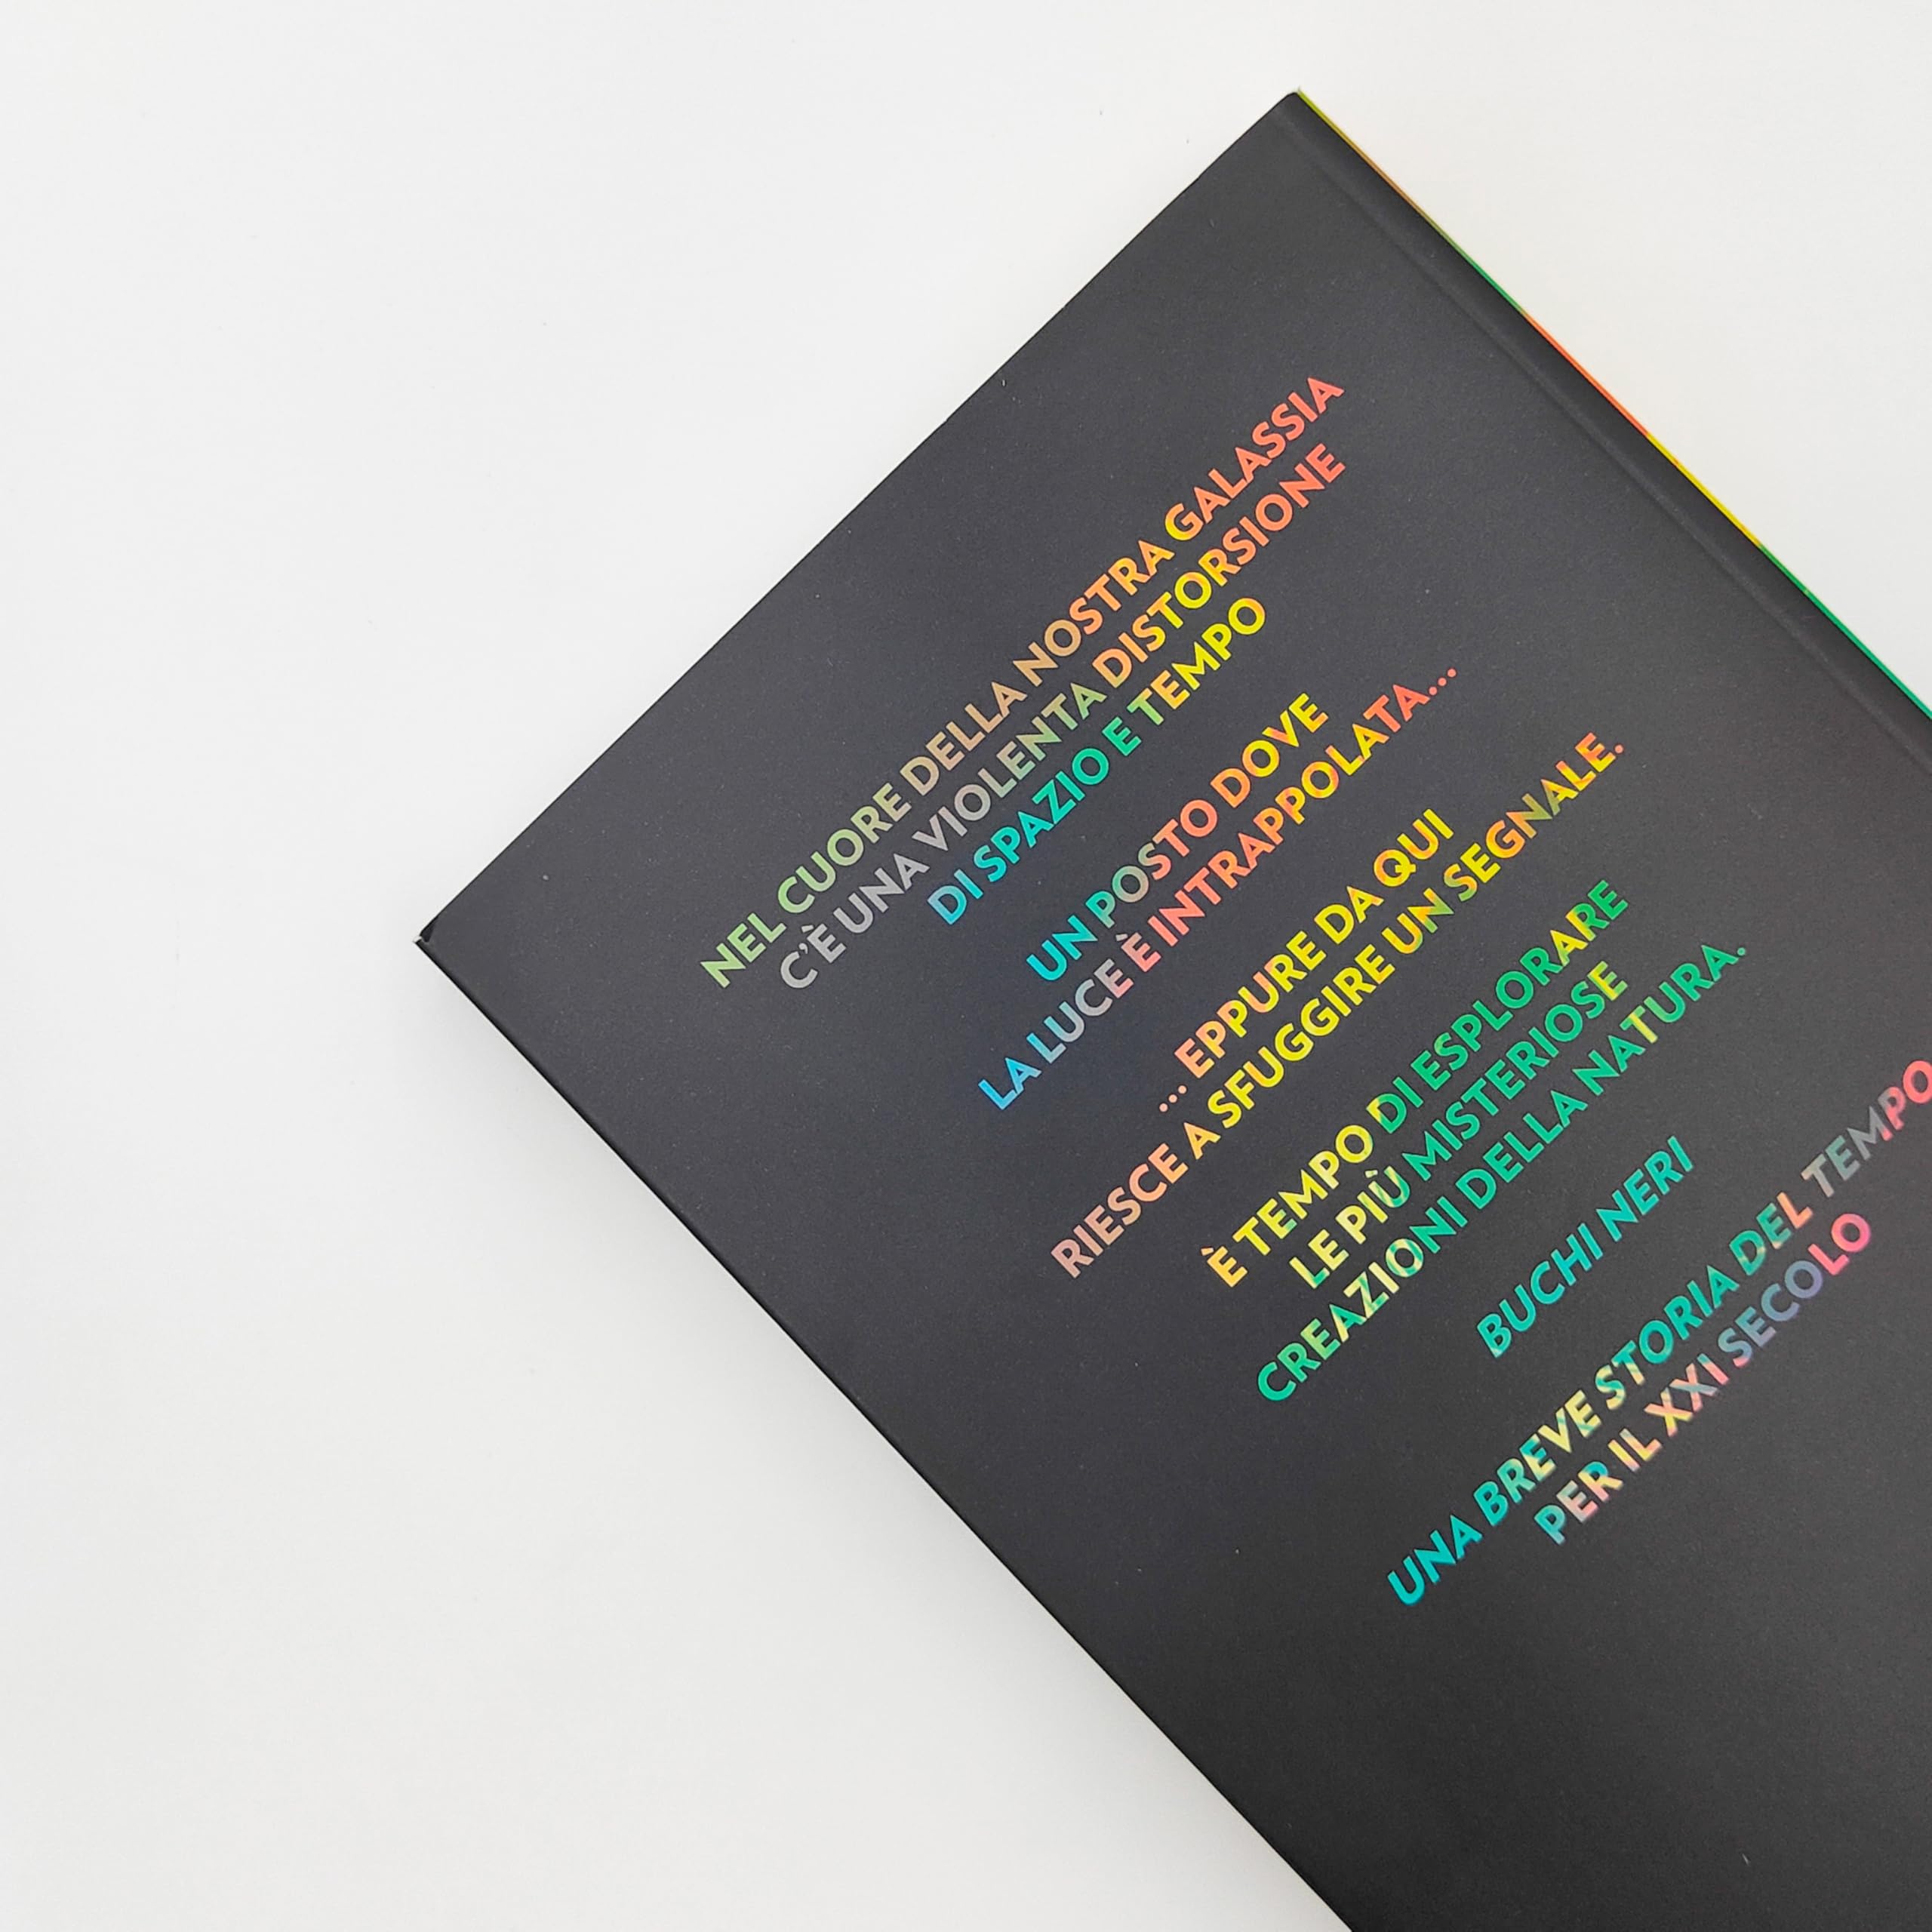 NEL CUORE DELLA NOSTRA GALASSIA
C'È UNA VIOLENTA DISTORSIONE
DI SPAZIO E TEMPO
UN POSTO DOVE
LA LUCE È INTRAPPOLATA...
... EPPURE DA QUI
RIESCE A SFUGGIRE UN SEGNALE.
È TEMPO DI ESPLORARE
LE PIÙ MISTERIOSE
CREAZIONI DELLA NATURA.
BUCHI NERI
UNA BREVE STORIA DEL TEMPO
PER IL XXI SECOLO